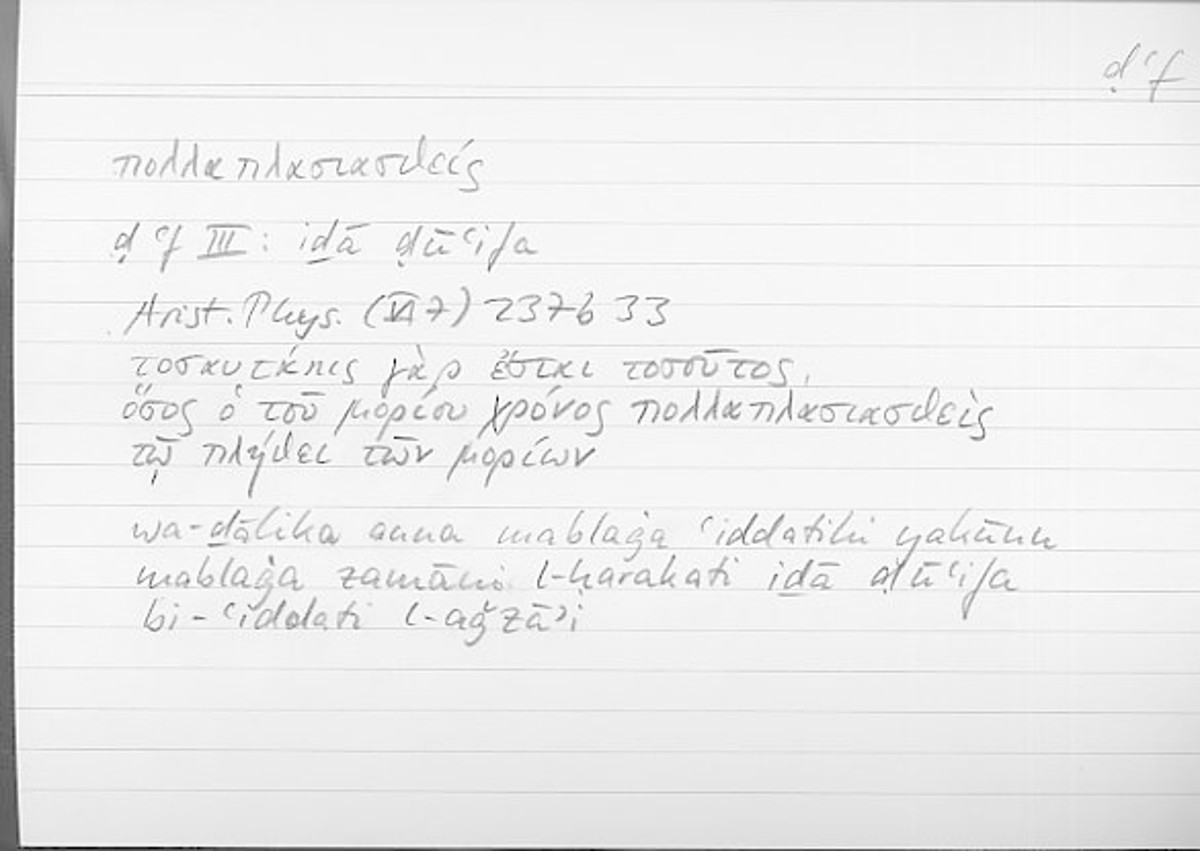 ḍʿf
πολλαπλασιασθείς
ḍʿf III: iḏā ḍūʿifa
Arist. Phys. (VI 7) 237b 33
τοσαυτάκις γὰρ ἔσται τοσοῦτος,
ὅσος ὁ τοῦ μορίου χρόνος πολλαπλασιασθεὶς
τῷ πλήθει τῶν μορίων
wa-ḏālika anna mablaġa ʿiddatihi yakūnu
mablaġa zamāni l-ḥarakati iḏā ḍūʿifa
bi-ʿiddati l-aǧzāʾi